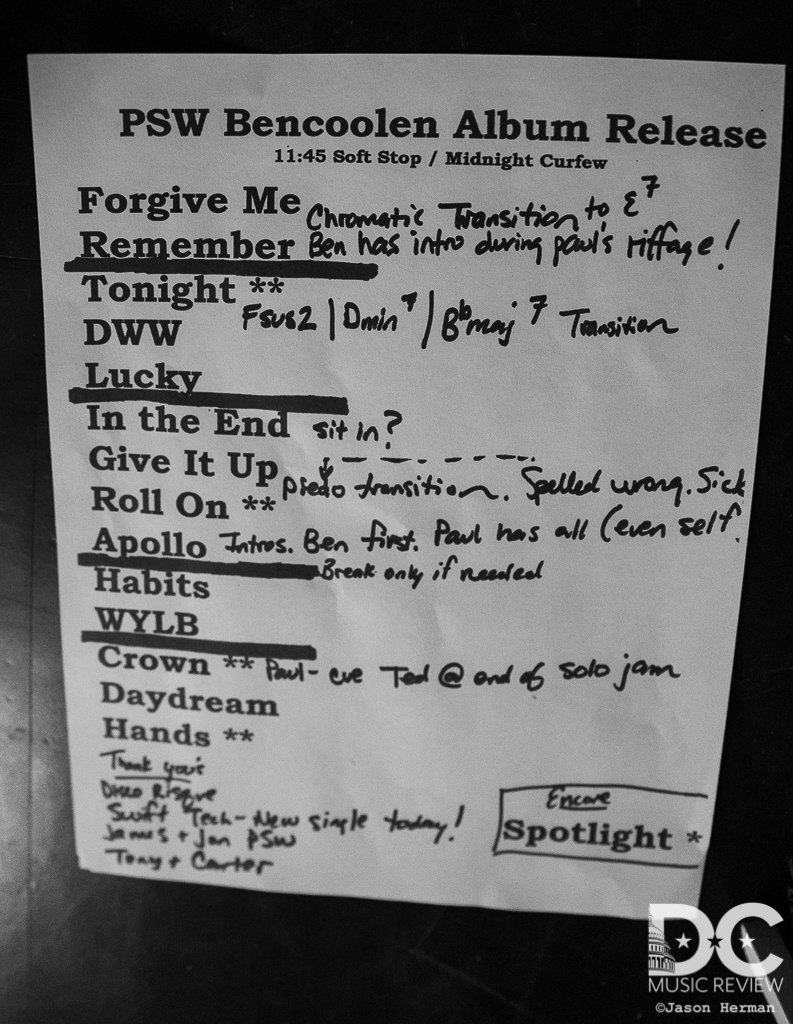 PSW Bencoolen Album Release
11:45 Soft Stop / Midnight Curfew
Forgive Me Chromatic Transition to E7
Remember Ben has intro during paul's riffage!
Tonight **
DWW Fsus2 | Dmin7 / Bbmaj7 Transition
Lucky
In the End sit in?
Give It Up piedo transition. Spelled wrong. Sick
Roll On **
Apollo Intros. Ben first. Paul has all (even self.
Break only if needed
Habits
WYLB
Crown ** Paul- cue Ted @ end of solo jam
Daydream
Hands **
Thank you's
Disco Risque
Swift Tech - New single today!
James + Jon PSW
Tony + Carter
Encore
Spotlight *
DC
MUSIC REVIEW
©Jason Herman